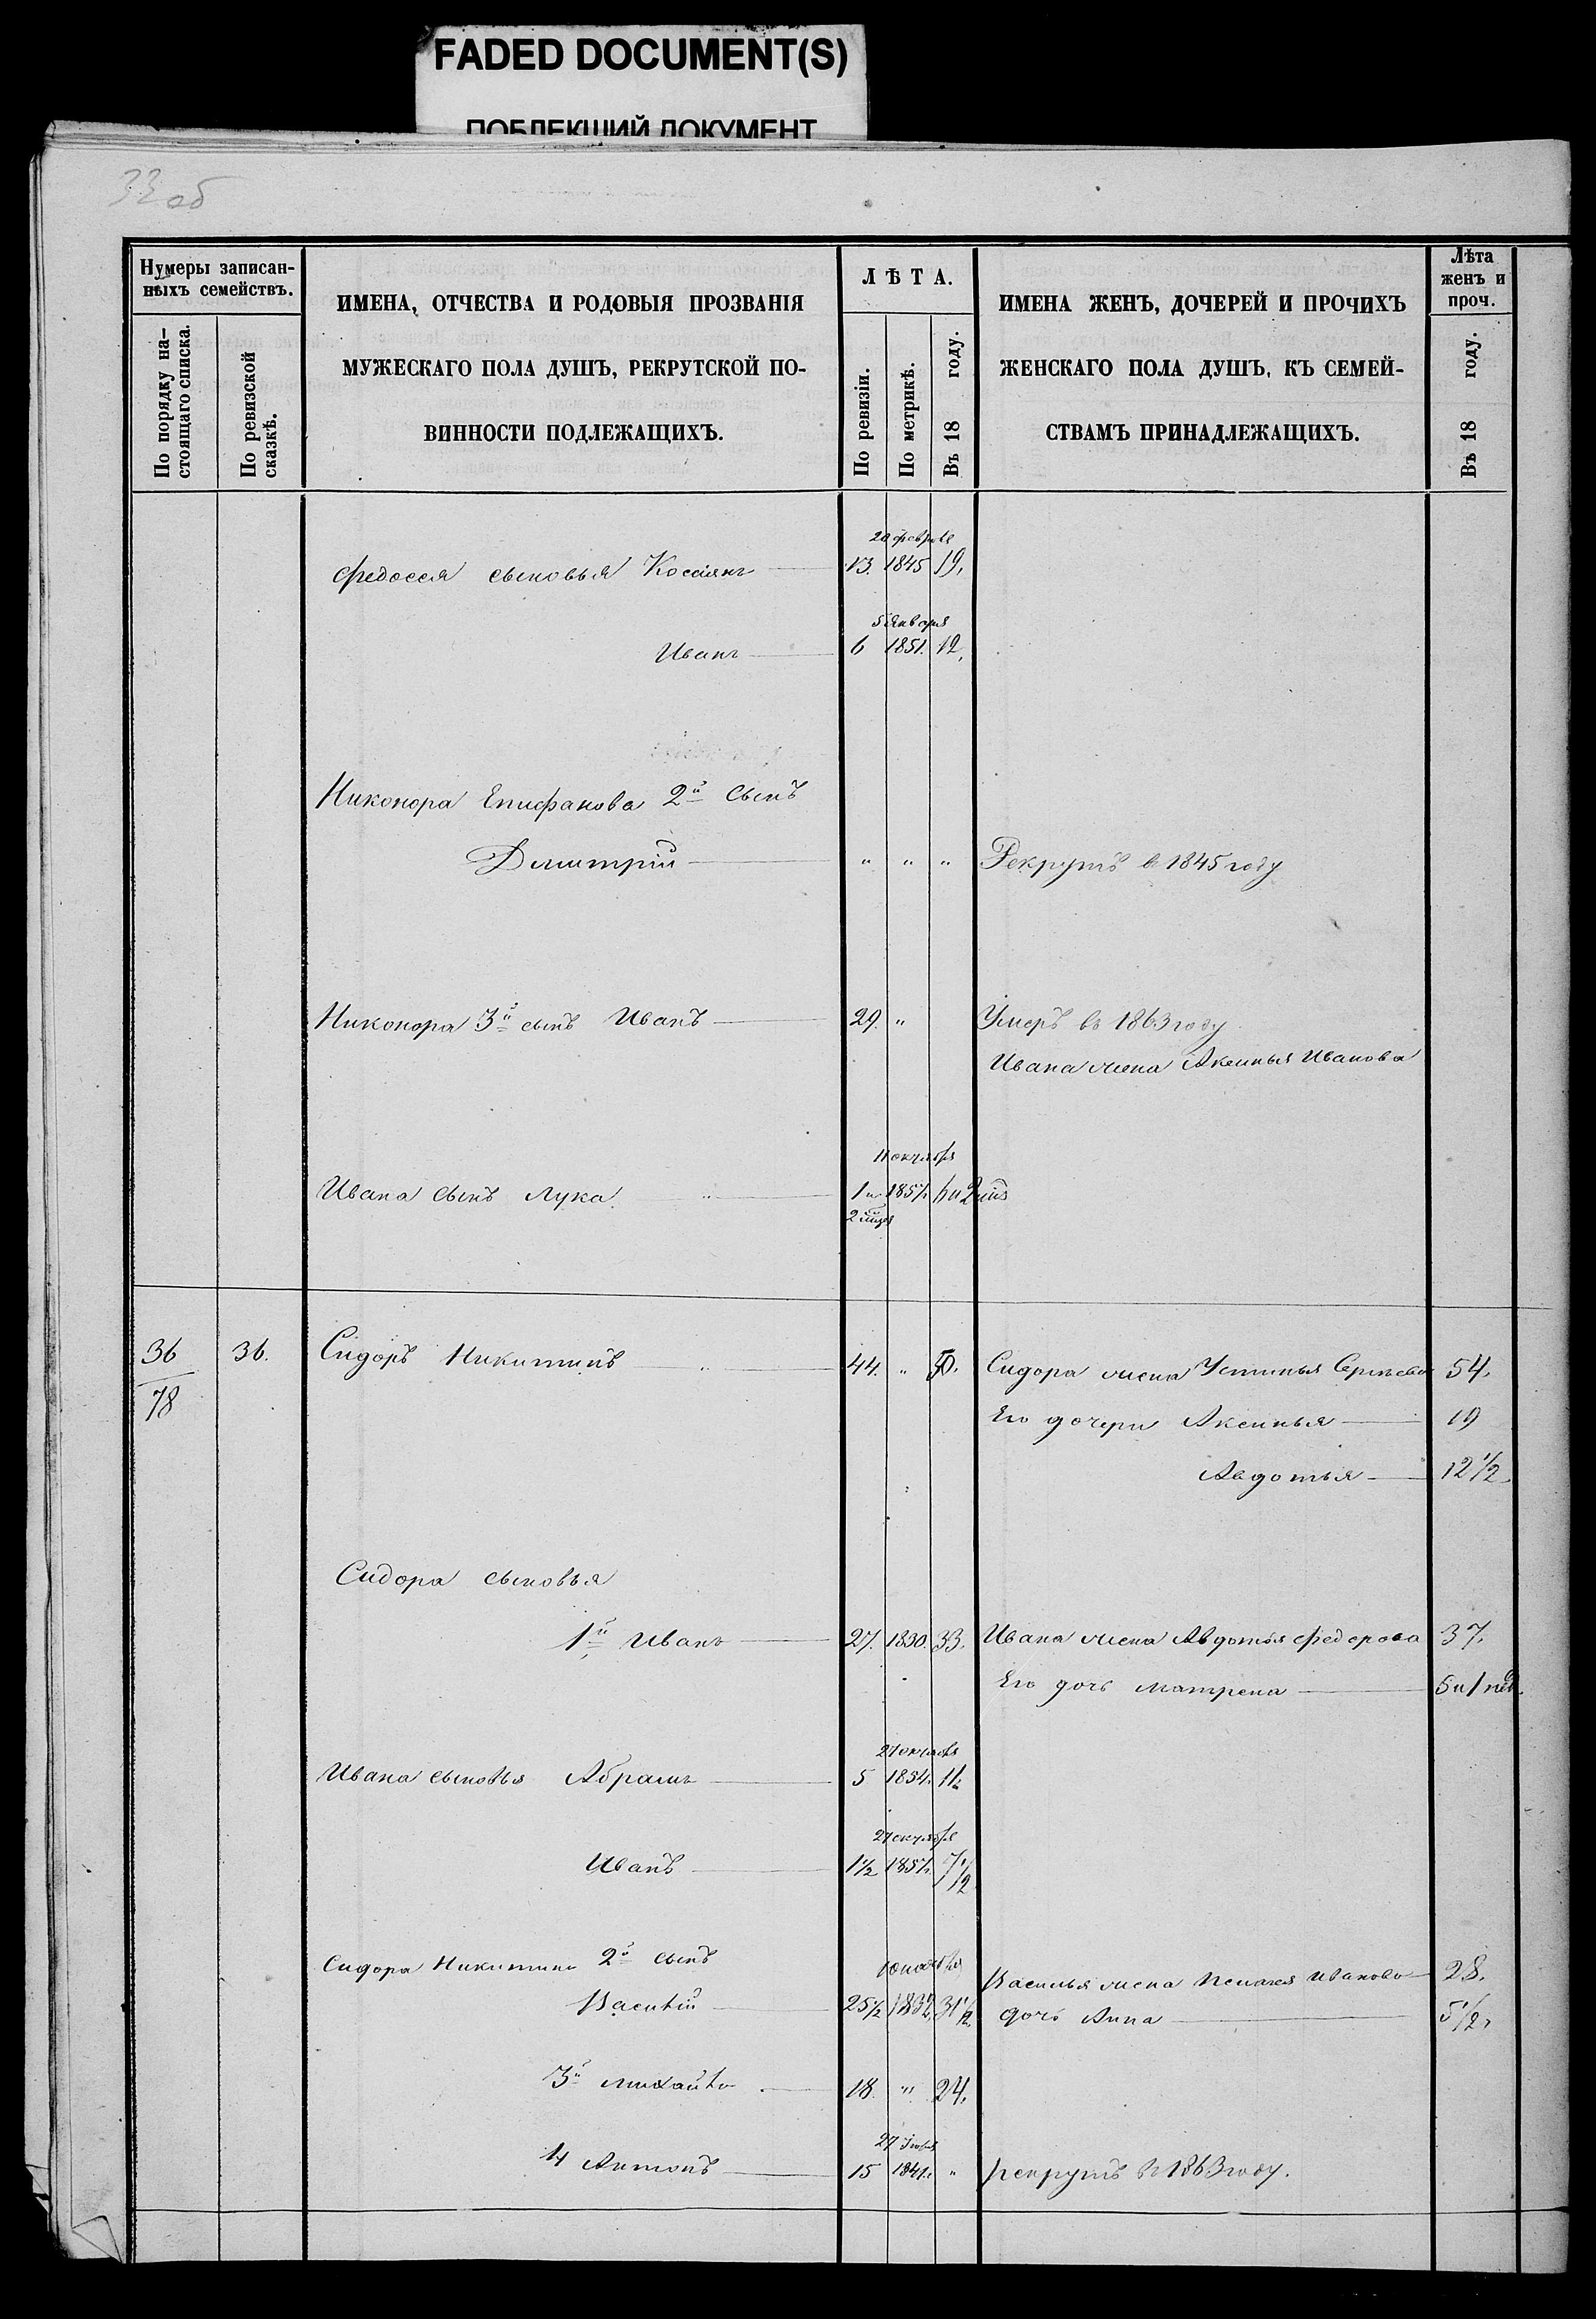 FADED DOCUMENT(S)
ПОБЛЕКШИЙ ДОКУМЕНТ
33 об
Нумеры записан-
ныхъ семействъ.
По порядку на-
стоящаго списка.
По ревизской
сказкѣ.
ИМЕНА, ОТЧЕСТВА И РОДОВЫЯ ПРОЗВАНІЯ
МУЖЕСКАГО ПОЛА ДУШЪ, РЕКРУТСКОЙ ПО-
ВИННОСТИ ПОДЛЕЖАЩИХЪ.
ЛѢТА.
По ревизіи.
По метрикѣ.
Въ 18 году.
ИМЕНА ЖЕНЪ, ДОЧЕРЕЙ И ПРОЧИХЪ
ЖЕНСКАГО ПОЛА ДУШЪ, КЪ СЕМЕЙ-
СТВАМЪ ПРИНАДЛЕЖАЩИХЪ.
Лѣта
женъ и
проч.
Въ 18 году.
20 февраля
Федосея сыновья Косьянъ 13. 1845 19.
5 января
Иванъ 6 1851. 12.
Никонора Епифанова 2й сынъ
Дмитрій " " " Рекрутъ в 1845 году
Никонора 3й сынъ Иванъ 29. " Умеръ въ 1863 году
Ивана жена Аксинья Иванова
11 октября
Ивана сынъ Лука " 1 и 1857. 6 и 2
2
36 36. Сидоръ Никитинъ " 44. " 50. Сидора жена Устинья Сергѣева 54.
78
Его дочери Аксинья 19
Авдотья 12 1/2
Сидора сыновья
1й Иванъ 27. 1830. 33. Ивана жена Авдотья Федорова 37.
Его дочь Матрена 5 и 1 нед.
27 октября
Ивана сыновья Абрамъ 5 1854. 11
27 октября
Иванъ 1 1/2 1857. 7 1/2
Сидора Никитина 2й сынъ
Василья жена Пелагея Иванова 28.
Василій 25 1/2 1832. 31 1/2 дочь Анна 5 1/2.
3й Михайло 18. " 24.
27 Іюля
4 Антонъ 15 1841. " рекрутъ въ 1863 году.